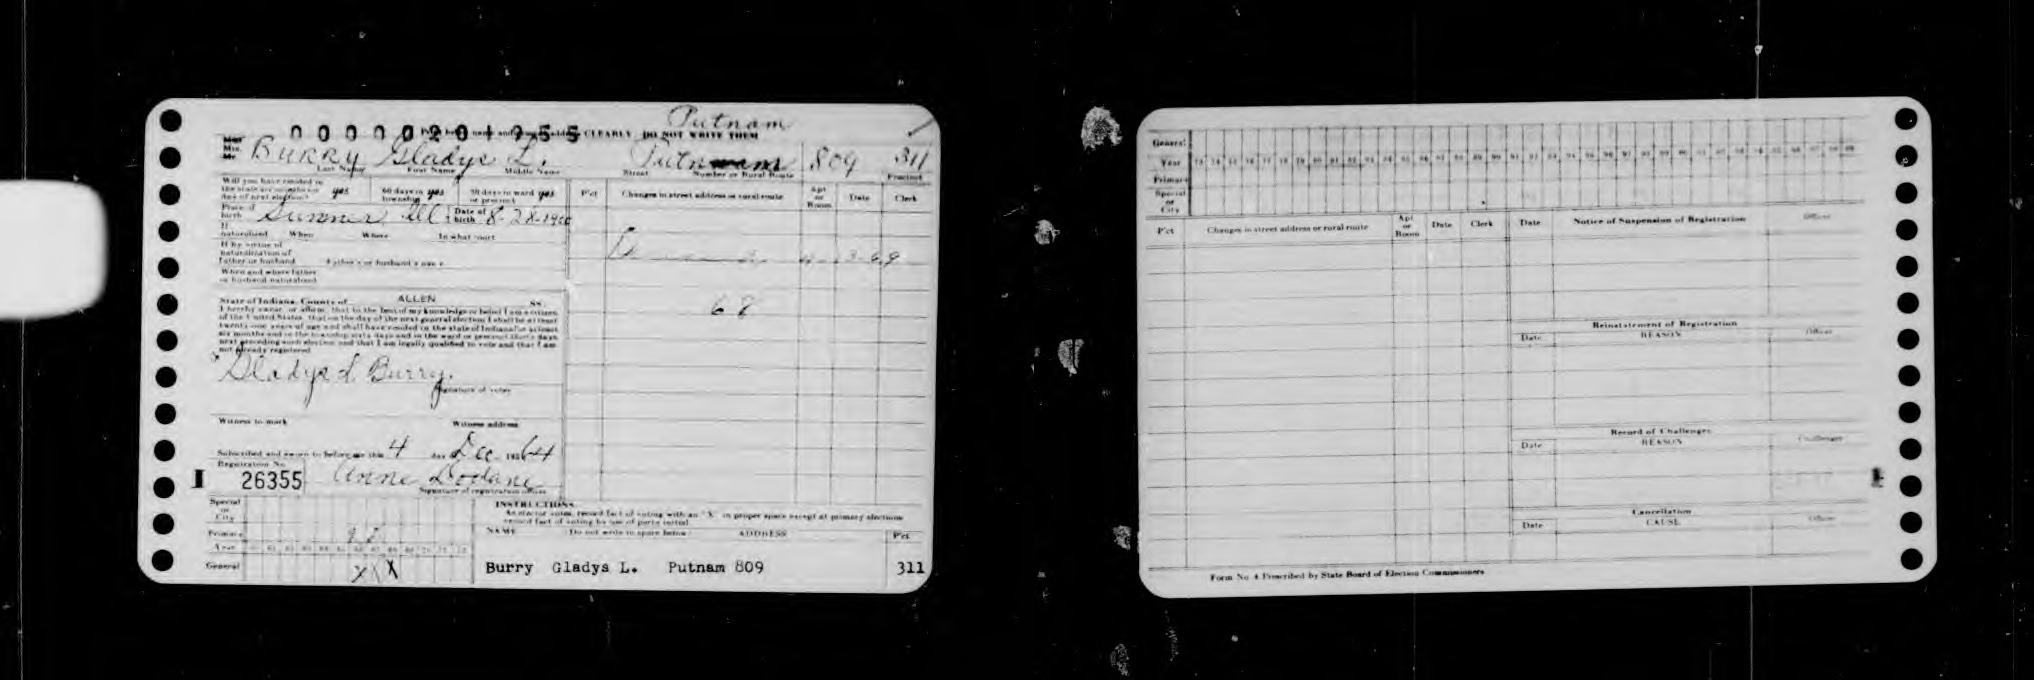 Putnam
CLEARLY DO NOT WRITE THEM
Mrs. BURRY Gladys L. Putnam 809 311
Last Name First Name Middle Name Street Number or Rural Route Precinct
Will you have resided in the state six months on day of next election? yes 60 days in township yes 30 days in ward or precinct yes
P'ct Changes in street address or rural route Apt or Room Date Clerk
Place of birth Sumner Ill Date of birth 8-28-1900
If naturalized When Where In what court
If by virtue of naturalization of Father or husband Father's or husband's name
When and where father or husband naturalized
68
State of Indiana, County of ALLEN SS.
I hereby swear, or affirm, that to the best of my knowledge or belief I am a citizen
of the United States, that on the day of the next general election I shall be at least
twenty-one years of age and shall have resided in the state of Indiana at least
six months and in the township sixty days and in the ward or precinct thirty days
next preceding such election and that I am legally qualified to vote and that I am
not already registered
Gladys L Burry.
Signature of voter
Witness to mark Witness address
Subscribed and sworn to before me this 4 day Dec 64
Registration No.
26355 Anne Dodane
Signature of registration officer
Special or City
Primary
Year
General X X X
INSTRUCTIONS
An elector votes, record fact of voting with an "X" in proper space except at primary elections
record fact of voting by use of party initial
NAME Do not write in space below ADDRESS P'ct
Burry Gladys L. Putnam 809 311
General
Year
Primary
Special or City
P'ct Changes in street address or rural route Apt or Room Date Clerk
Date Notice of Suspension of Registration Officer
Reinstatement of Registration
Date REASON Officer
Record of Challenges
Date REASON Challenger
Cancellation
Date CAUSE Officer
Form No. 4 Prescribed by State Board of Election Commissioners